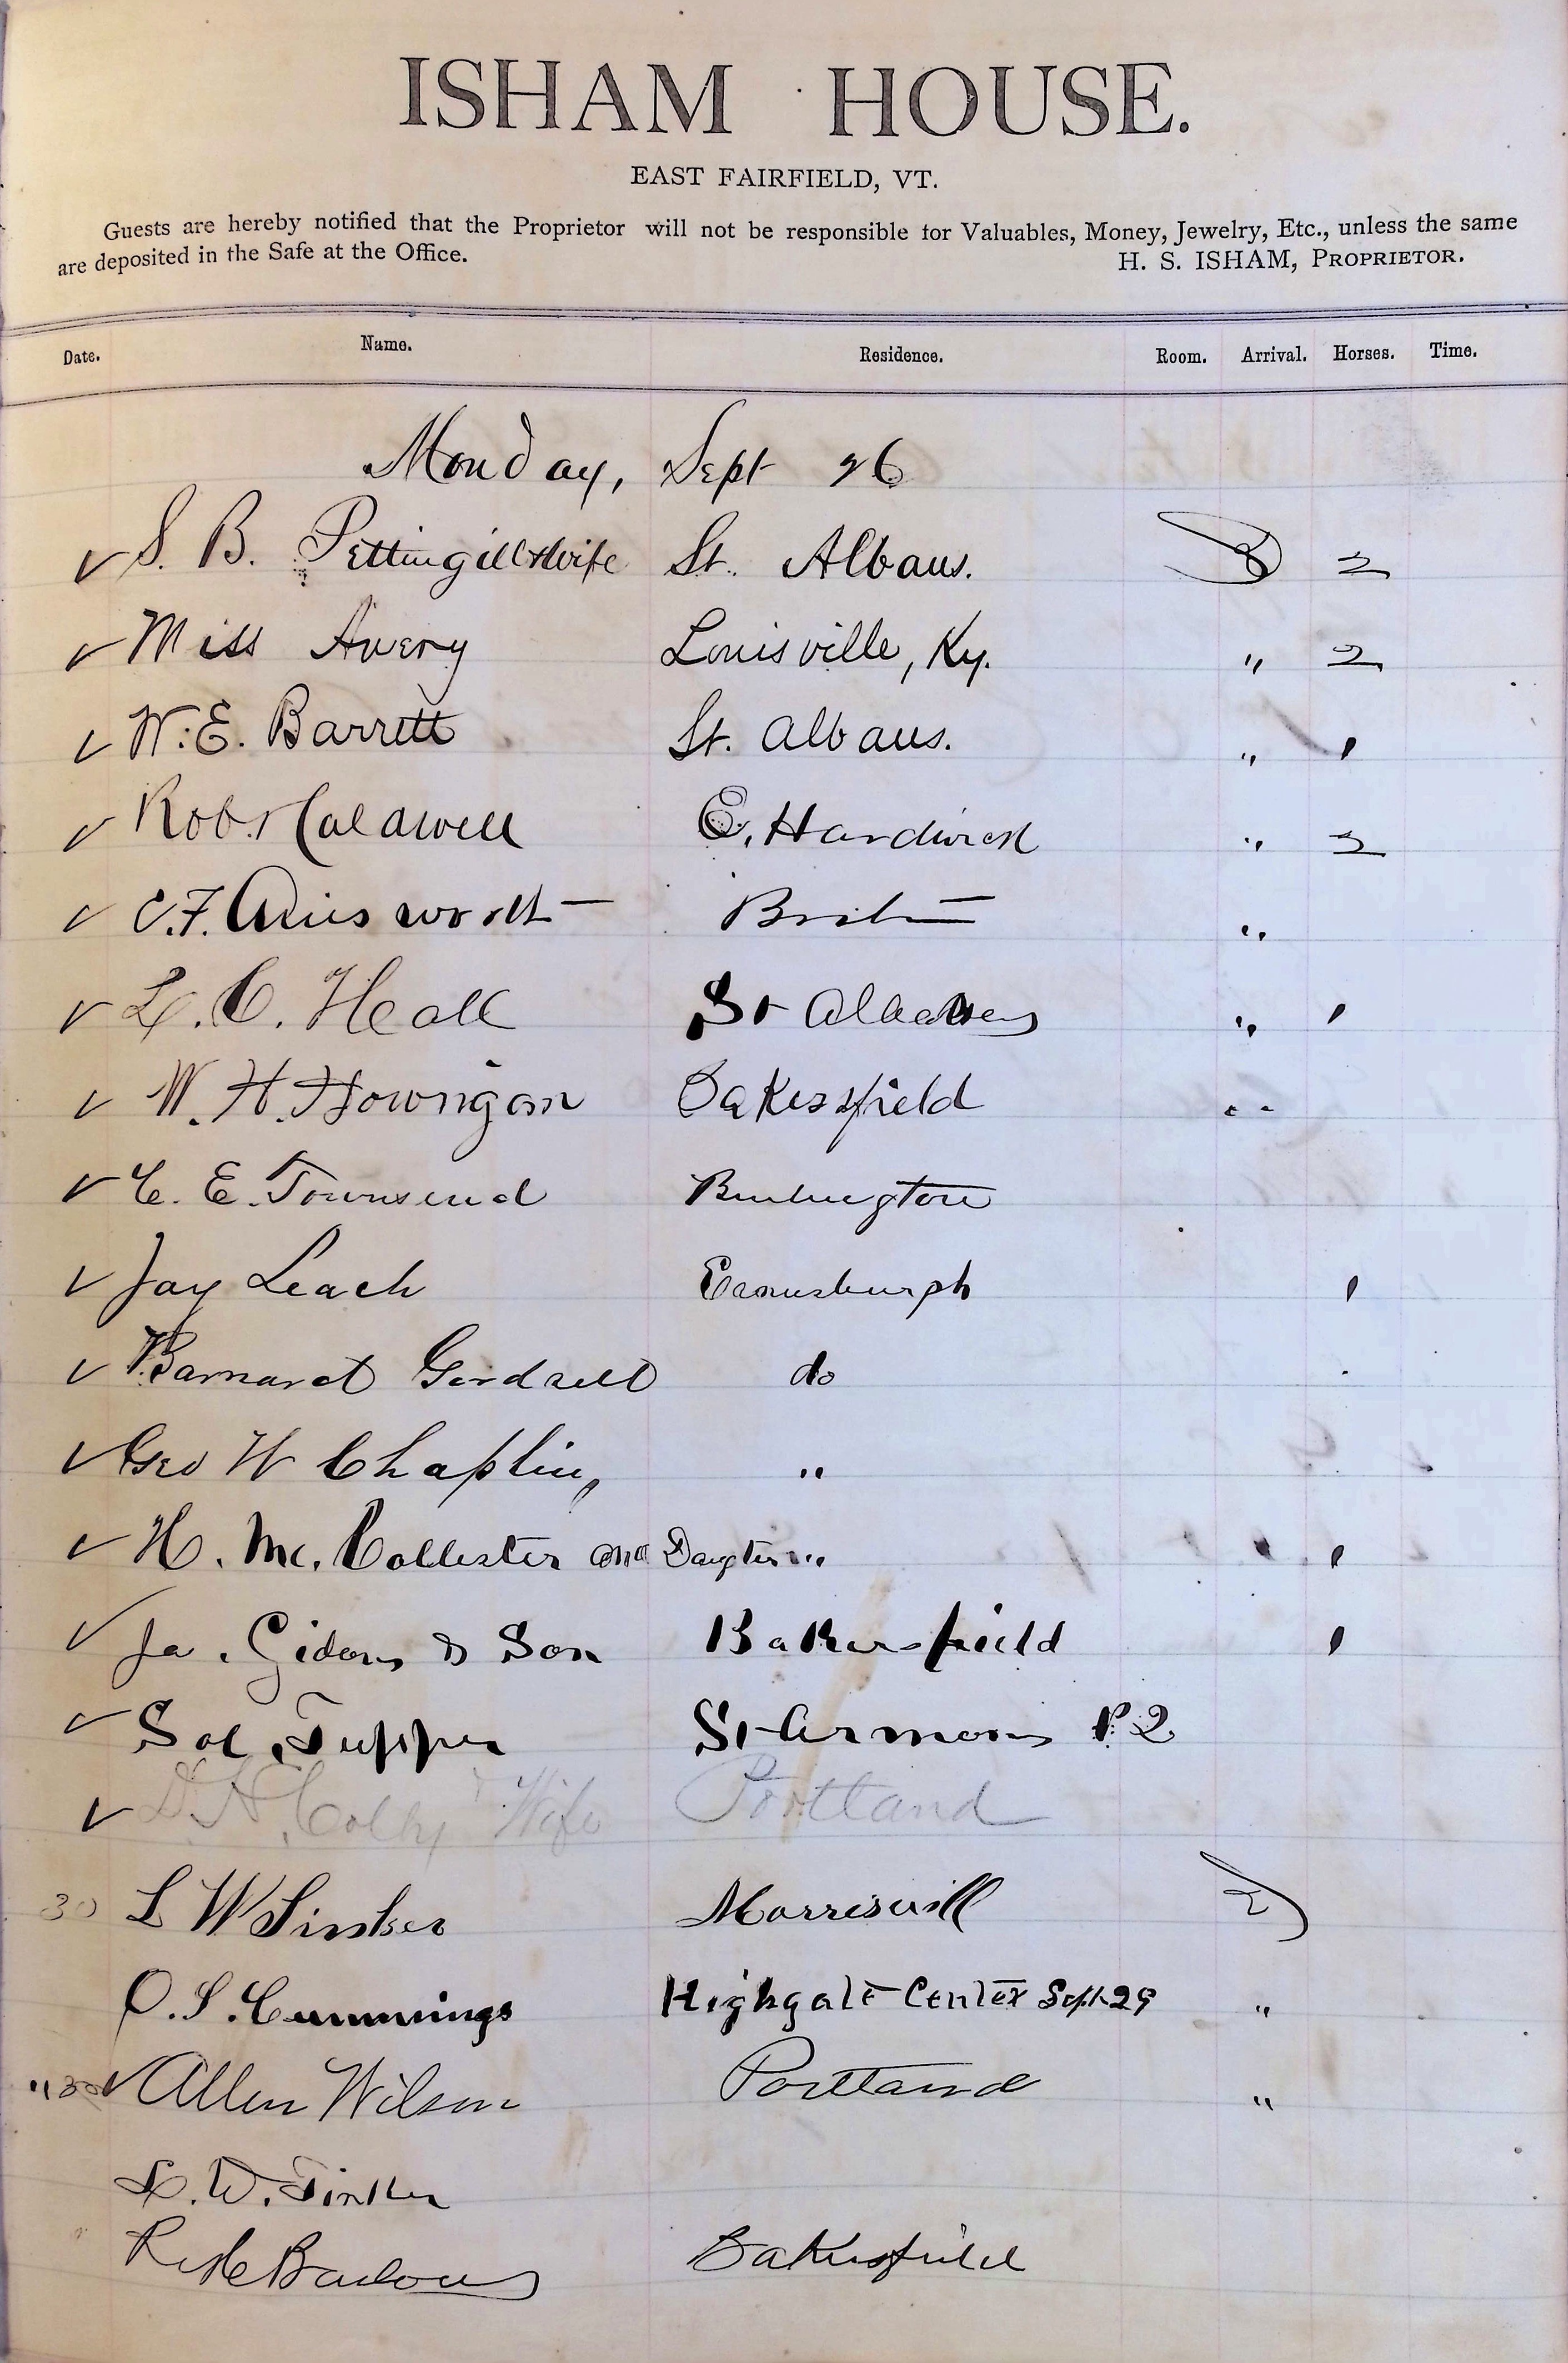 ISHAM HOUSE.
EAST FAIRFIELD, VT.
Guests are hereby notified that the Proprietor will not be responsible for Valuables, Money, Jewelry, Etc., unless the same
are deposited in the Safe at the Office. H. S. ISHAM, PROPRIETOR.
Date. Name. Residence. Room. Arrival. Horses. Time.
Monday, Sept 26
✓ S. B. Pettingill & Wife St. Albans. B 2
✓ Miss Avery Louisville, Ky. " 2
✓ W. E. Barrett St. Albans. " 1
✓ Robt Caldwell E. Hardwick " 2
✓ C. F. Ainsworth Boston "
✓ L. C. Heall St Albans " 1
✓ W. H. Howrigan Bakersfield "
✓ C. E. Townsend Burlington
✓ Jay Leach Enosburgh 1
✓ Barnard do
✓ Geo W Chaplin, "
✓ H. Mc. Collester and Daugter " 1
✓ Ja. Gidons & Son Bakersfield 1
✓ Sol Tupper St Armons P. 2
✓ Colby Wife Portland
30 L W Tinker Morrisvill
O. S. Cummings Highgate Center Sept 29 "
" 30 ✓ Allen Wilson Portland "
L. W. Tinker
Barlow Bakersfield